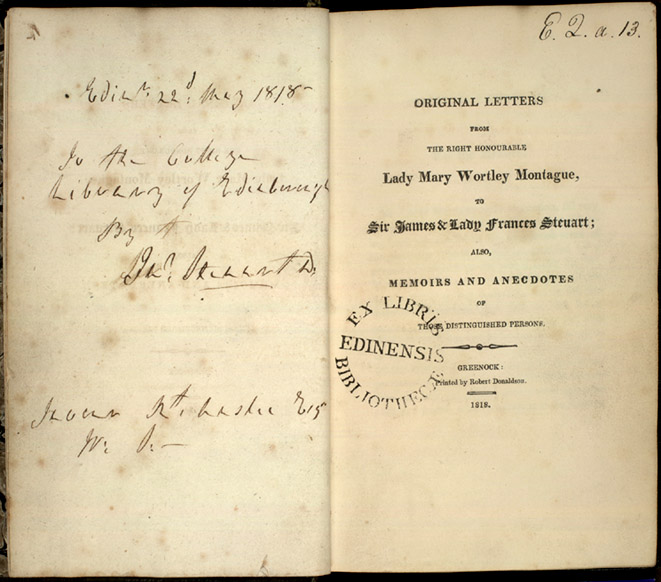 Edinr. 22d. May 1818
To the College
Library of Edinburgh
By
Esq
E. 2. a. 13.
ORIGINAL LETTERS
FROM
THE RIGHT HONOURABLE
Lady Mary Wortley Montague,
TO
Sir James & Lady Frances Steuart;
ALSO,
MEMOIRS AND ANECDOTES
OF
THOSE DISTINGUISHED PERSONS.
EX LIBRIS
EDINENSIS
BIBLIOTHECÆ
GREENOCK:
Printed by Robert Donaldson.
1818.